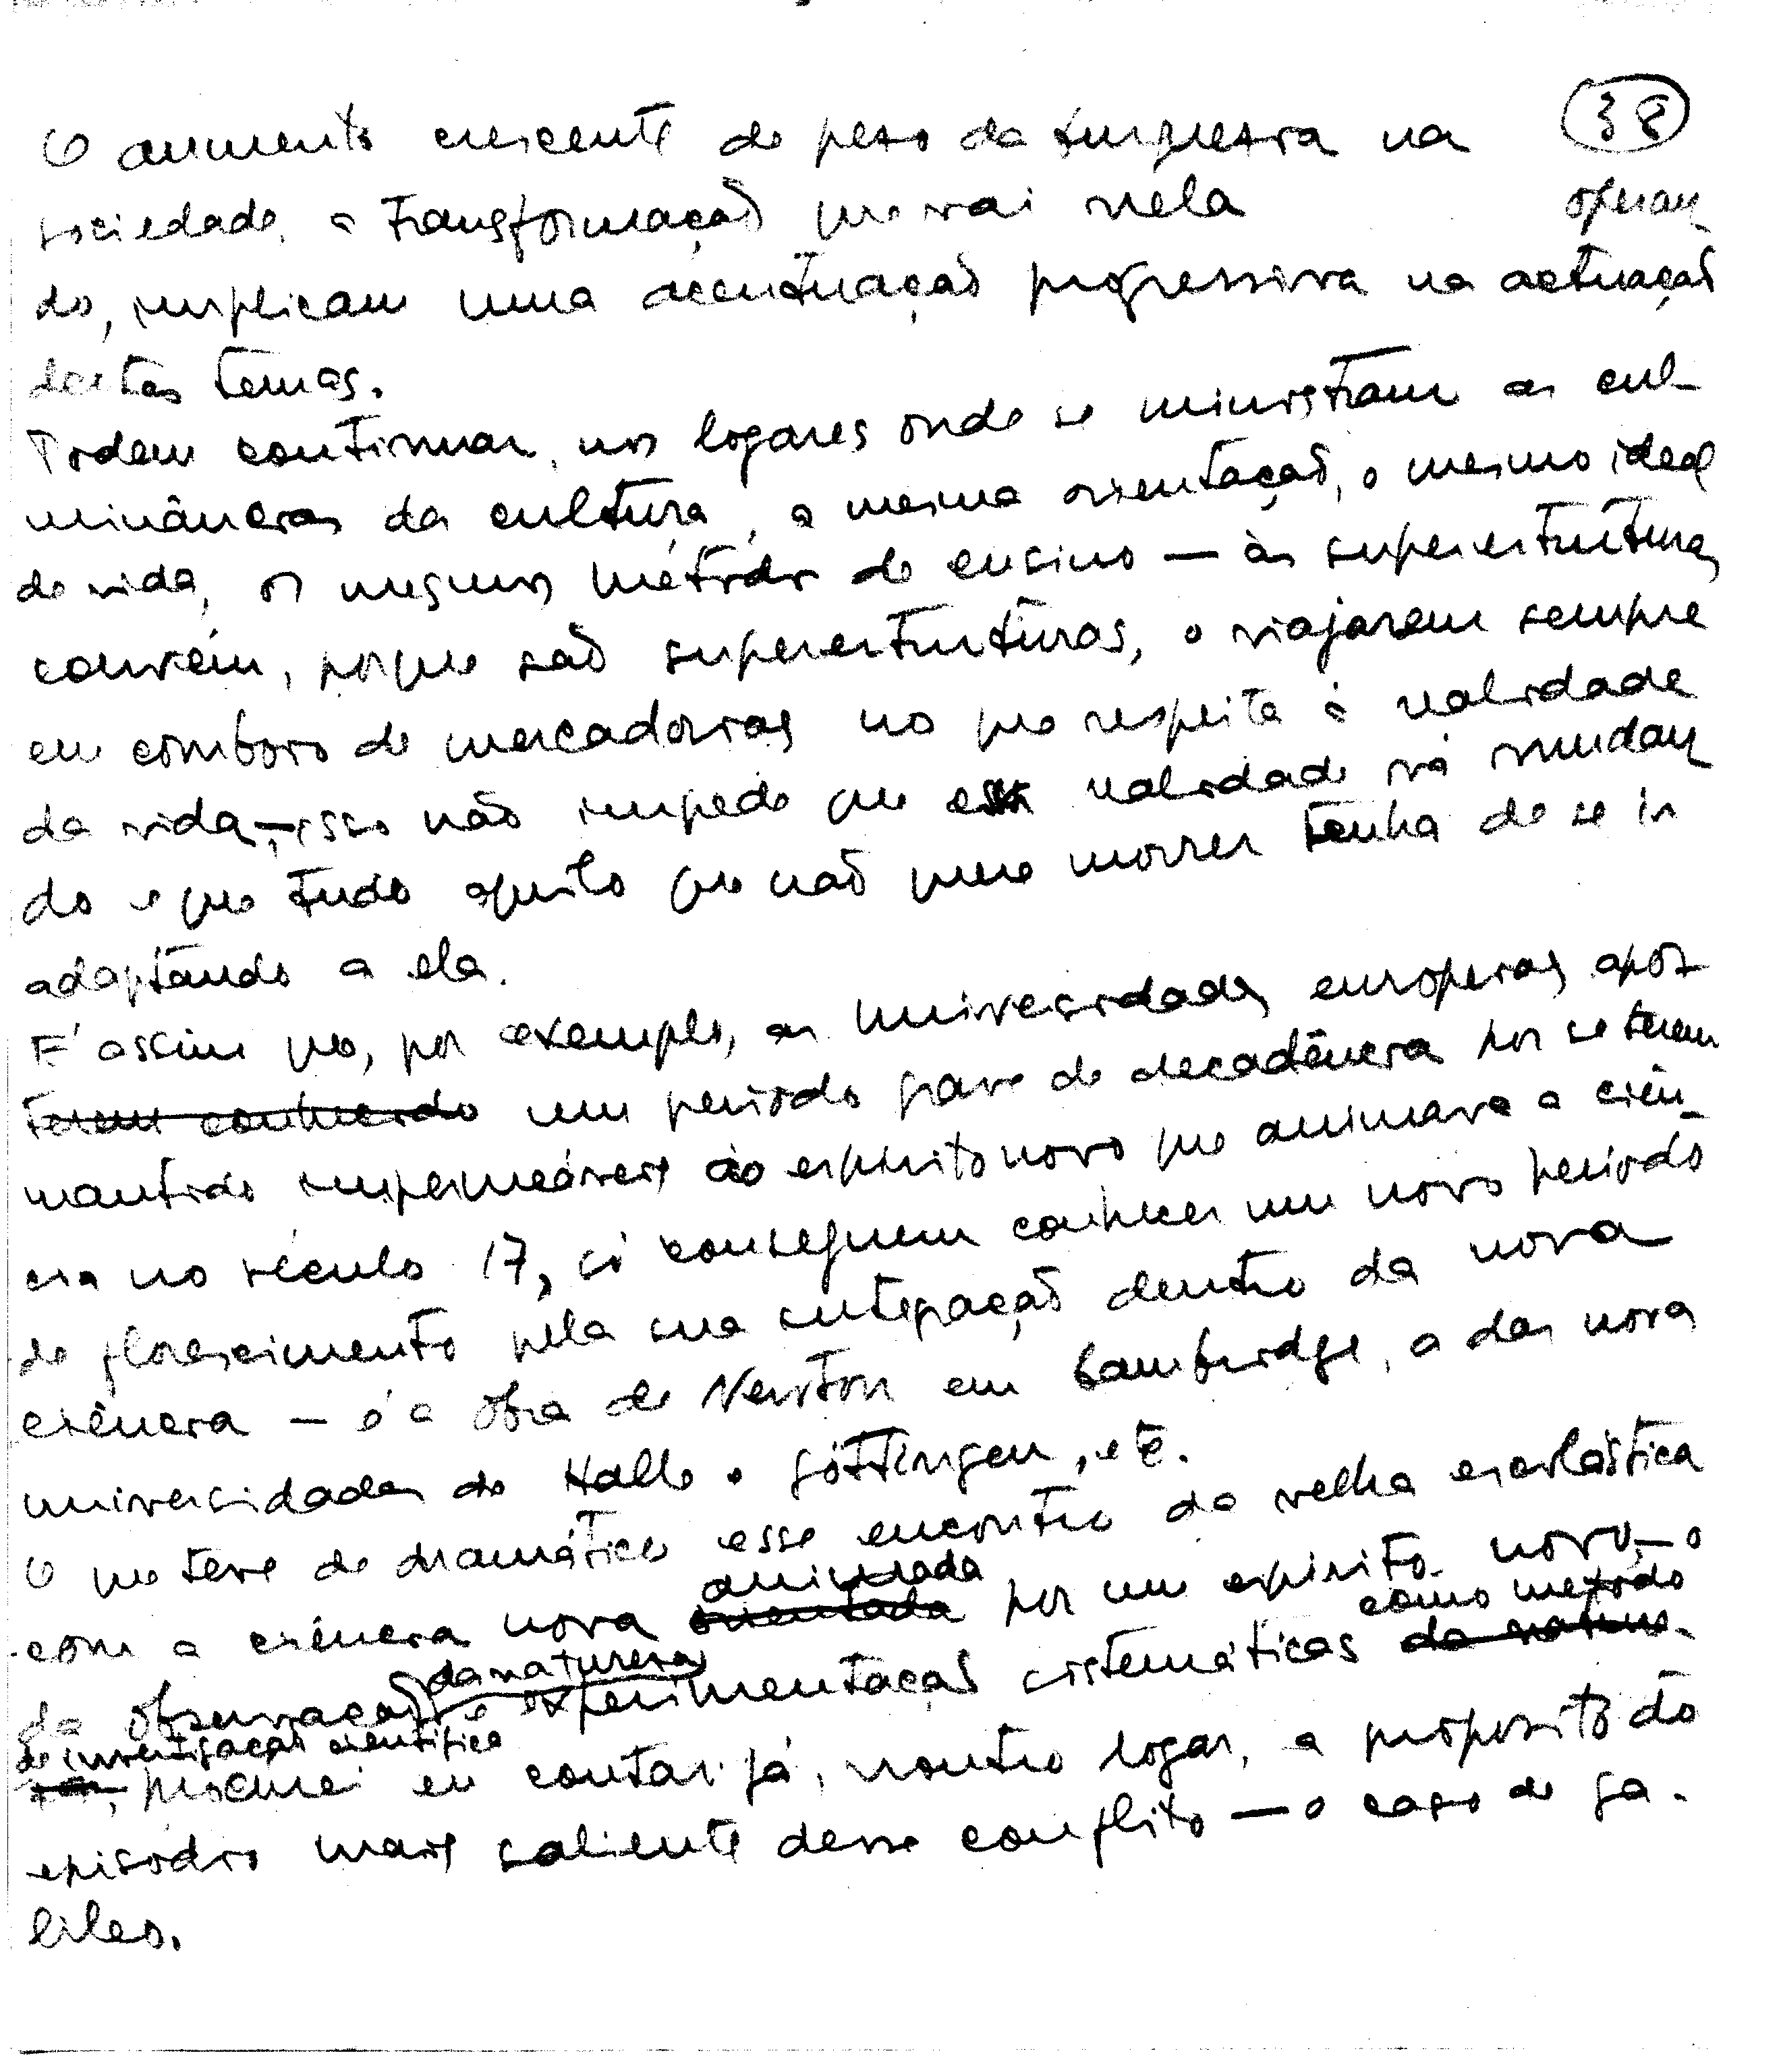 38
O aumento crescente do peso da burguesia na
sociedade, a transformação que vai nela operan
do, implicam uma acentuação progressiva na actuação
destas temas.
Podem continuar, nos logares onde se ministram as cul-
minâncias da cultura, a mesma orientação, o mesmo ideal
de vida, os mesmos métodos de ensino — às superestruturas
convém, porque são superestruturas, o viajarem sempre
em comboio de mercadorias no que respeita à realidade
da vida, — isso não impede que essa realidade vá mudan
do e que tudo aquilo que não quere morrer tenha de se ir
adaptando a ela.
É assim que, por exemplo, as Universidades europeias, após
terem conhecido um período grave de decadência por se terem
mantido impermeáveis ao espírito novo que animava a ciên-
cia no século 17, só conseguem conhecer um novo período
de florescimento pela sua integração dentro da nova
ciência — é a obra de Newton em Cambridge, a das novas
universidades de Halle e Göttingen, etc.
O que teve de dramático esse encontro da velha escolástica
com a ciência nova orientada animada por um espírito novo, — o
da observação da natureza e experimentação sistemáticas da nature- como método
de investigação científica
za, procurei eu contar já, noutro logar, a proposito do
episodio mais saliente desse conflito — o caso de Ga-
lileo.